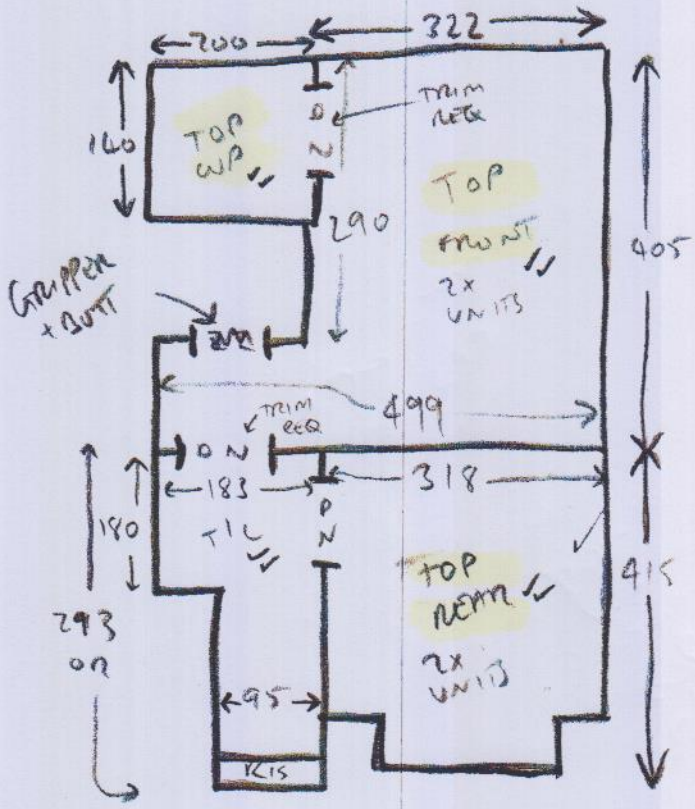 200
322
TRIM
REQ
140
TOP
WP
DN
TOP
FRONT
2x
UNITS
290
405
GRIPPER
+ BUTT
499
TRIM
REQ
DN
183
318
180
T/L
DN
TOP
REAR
2x
UNITS
415
293
OR
95